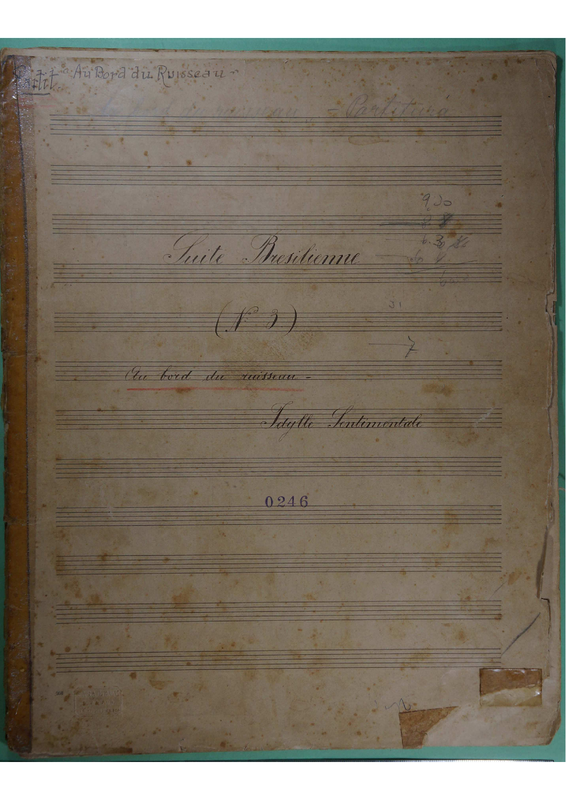 Partit Au Bord du Ruisseau -
- Partitura
9,20
Suite Bresilienne
(Nº 3)
7
Au bord du ruisseau -
Idylle Sentimentale
0246